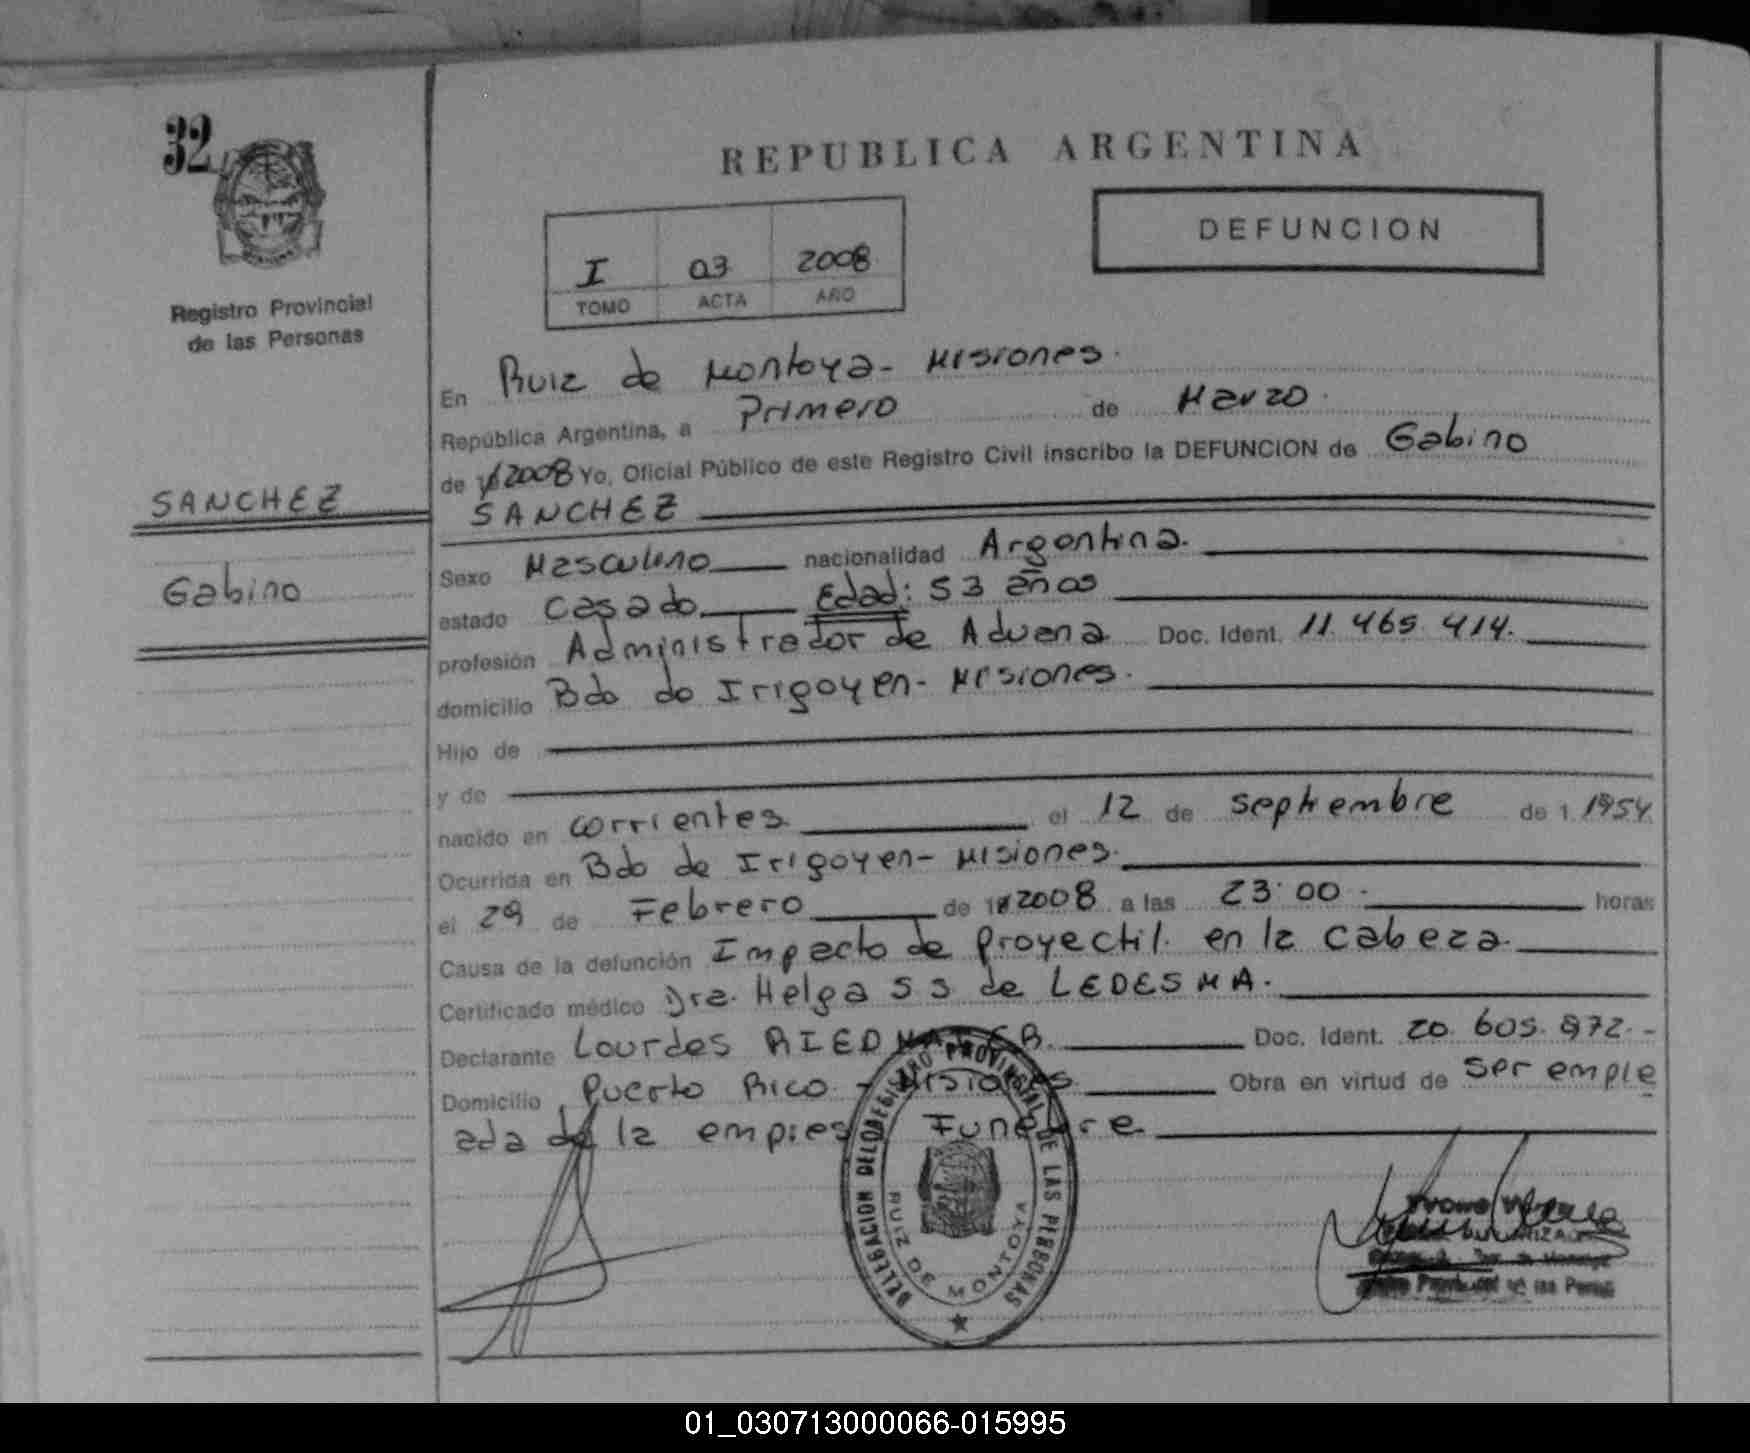 32
Registro Provincial
de las Personas
SANCHEZ
Gabino
REPUBLICA ARGENTINA
DEFUNCION
I 03 2008
TOMO ACTA AÑO
En Ruiz de Montoya - Misiones.
República Argentina, a Primero de Marzo.
de 1 2008 Yo, Oficial Público de este Registro Civil inscribo la DEFUNCION de Gabino
SANCHEZ
Sexo Masculino nacionalidad Argentina.
estado Casado. Edad: 53 años
profesión Administrador de Aduana Doc. Ident. 11.465.414.
domicilio Bdo de Irigoyen - Misiones.
Hijo de
y de
nacido en Corrientes. el 12 de Septiembre de 1 1954.
Ocurrida en Bdo de Irigoyen - Misiones.
el 29 de Febrero de 1 2008 a las 23:00 horas
Causa de la defunción Impacto de proyectil en la cabeza.
Certificado médico Dra. Helga S S de LEDESMA.
Declarante Lourdes RIEDMAIER. Doc. Ident. 20.605.972.-
Domicilio Puerto Rico - Misiones Obra en virtud de Ser emple
ada de la empresa Funebre
DELEGACION DEL REGISTRO PROVINCIAL DE LAS PERSONAS
RUIZ DE MONTOYA
01_030713000066-015995